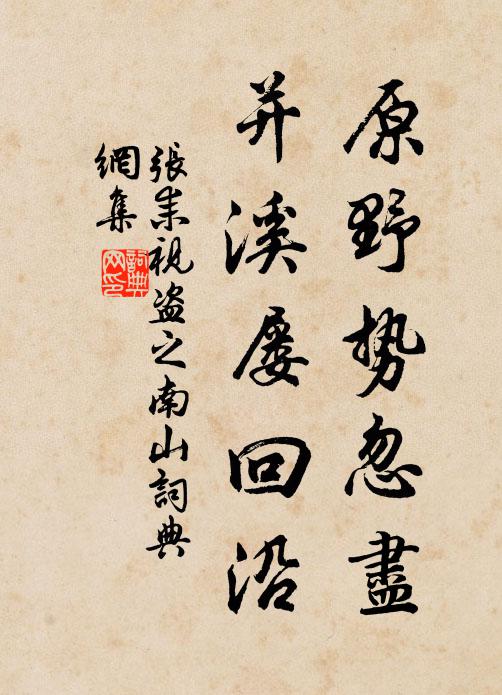 原野势忽盡
并溪屡回沿
張耒視盗之南山詞典
網集
詞典
网印